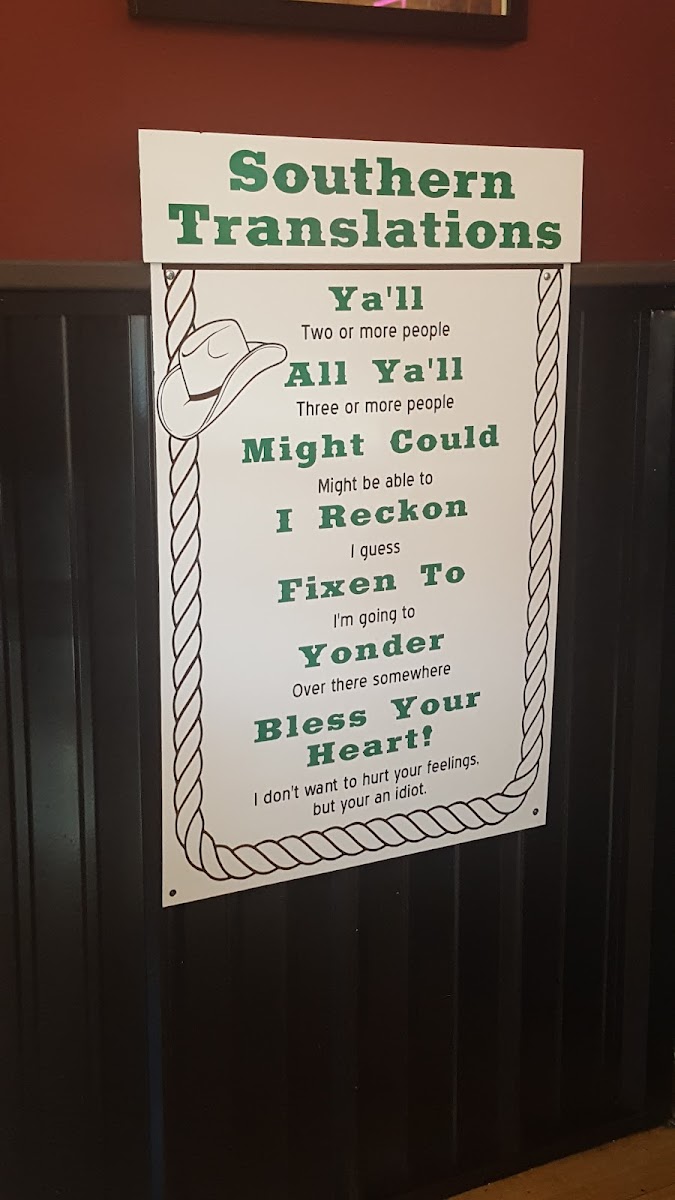 Southern
Translations
Ya'll
Two or more people
All Ya'll
Three or more people
Might Could
Might be able to
I Reckon
I guess
Fixen To
I'm going to
Yonder
Over there somewhere
Bless Your
Heart!
I don't want to hurt your feelings,
but your an idiot.